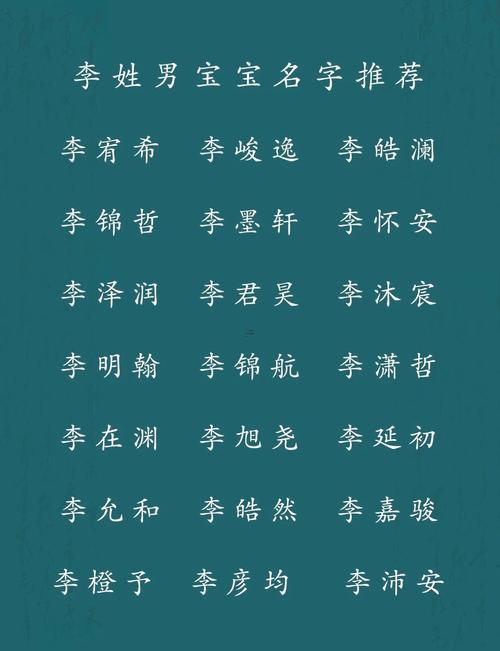 李姓男宝宝名字推荐
李宥希 李峻逸 李皓澜
李锦哲 李墨轩 李怀安
李泽润 李君昊 李沐宸
李明翰 李锦航 李潇哲
李在渊 李旭尧 李延初
李允和 李皓然 李嘉骏
李橙予 李彦均 李沛安